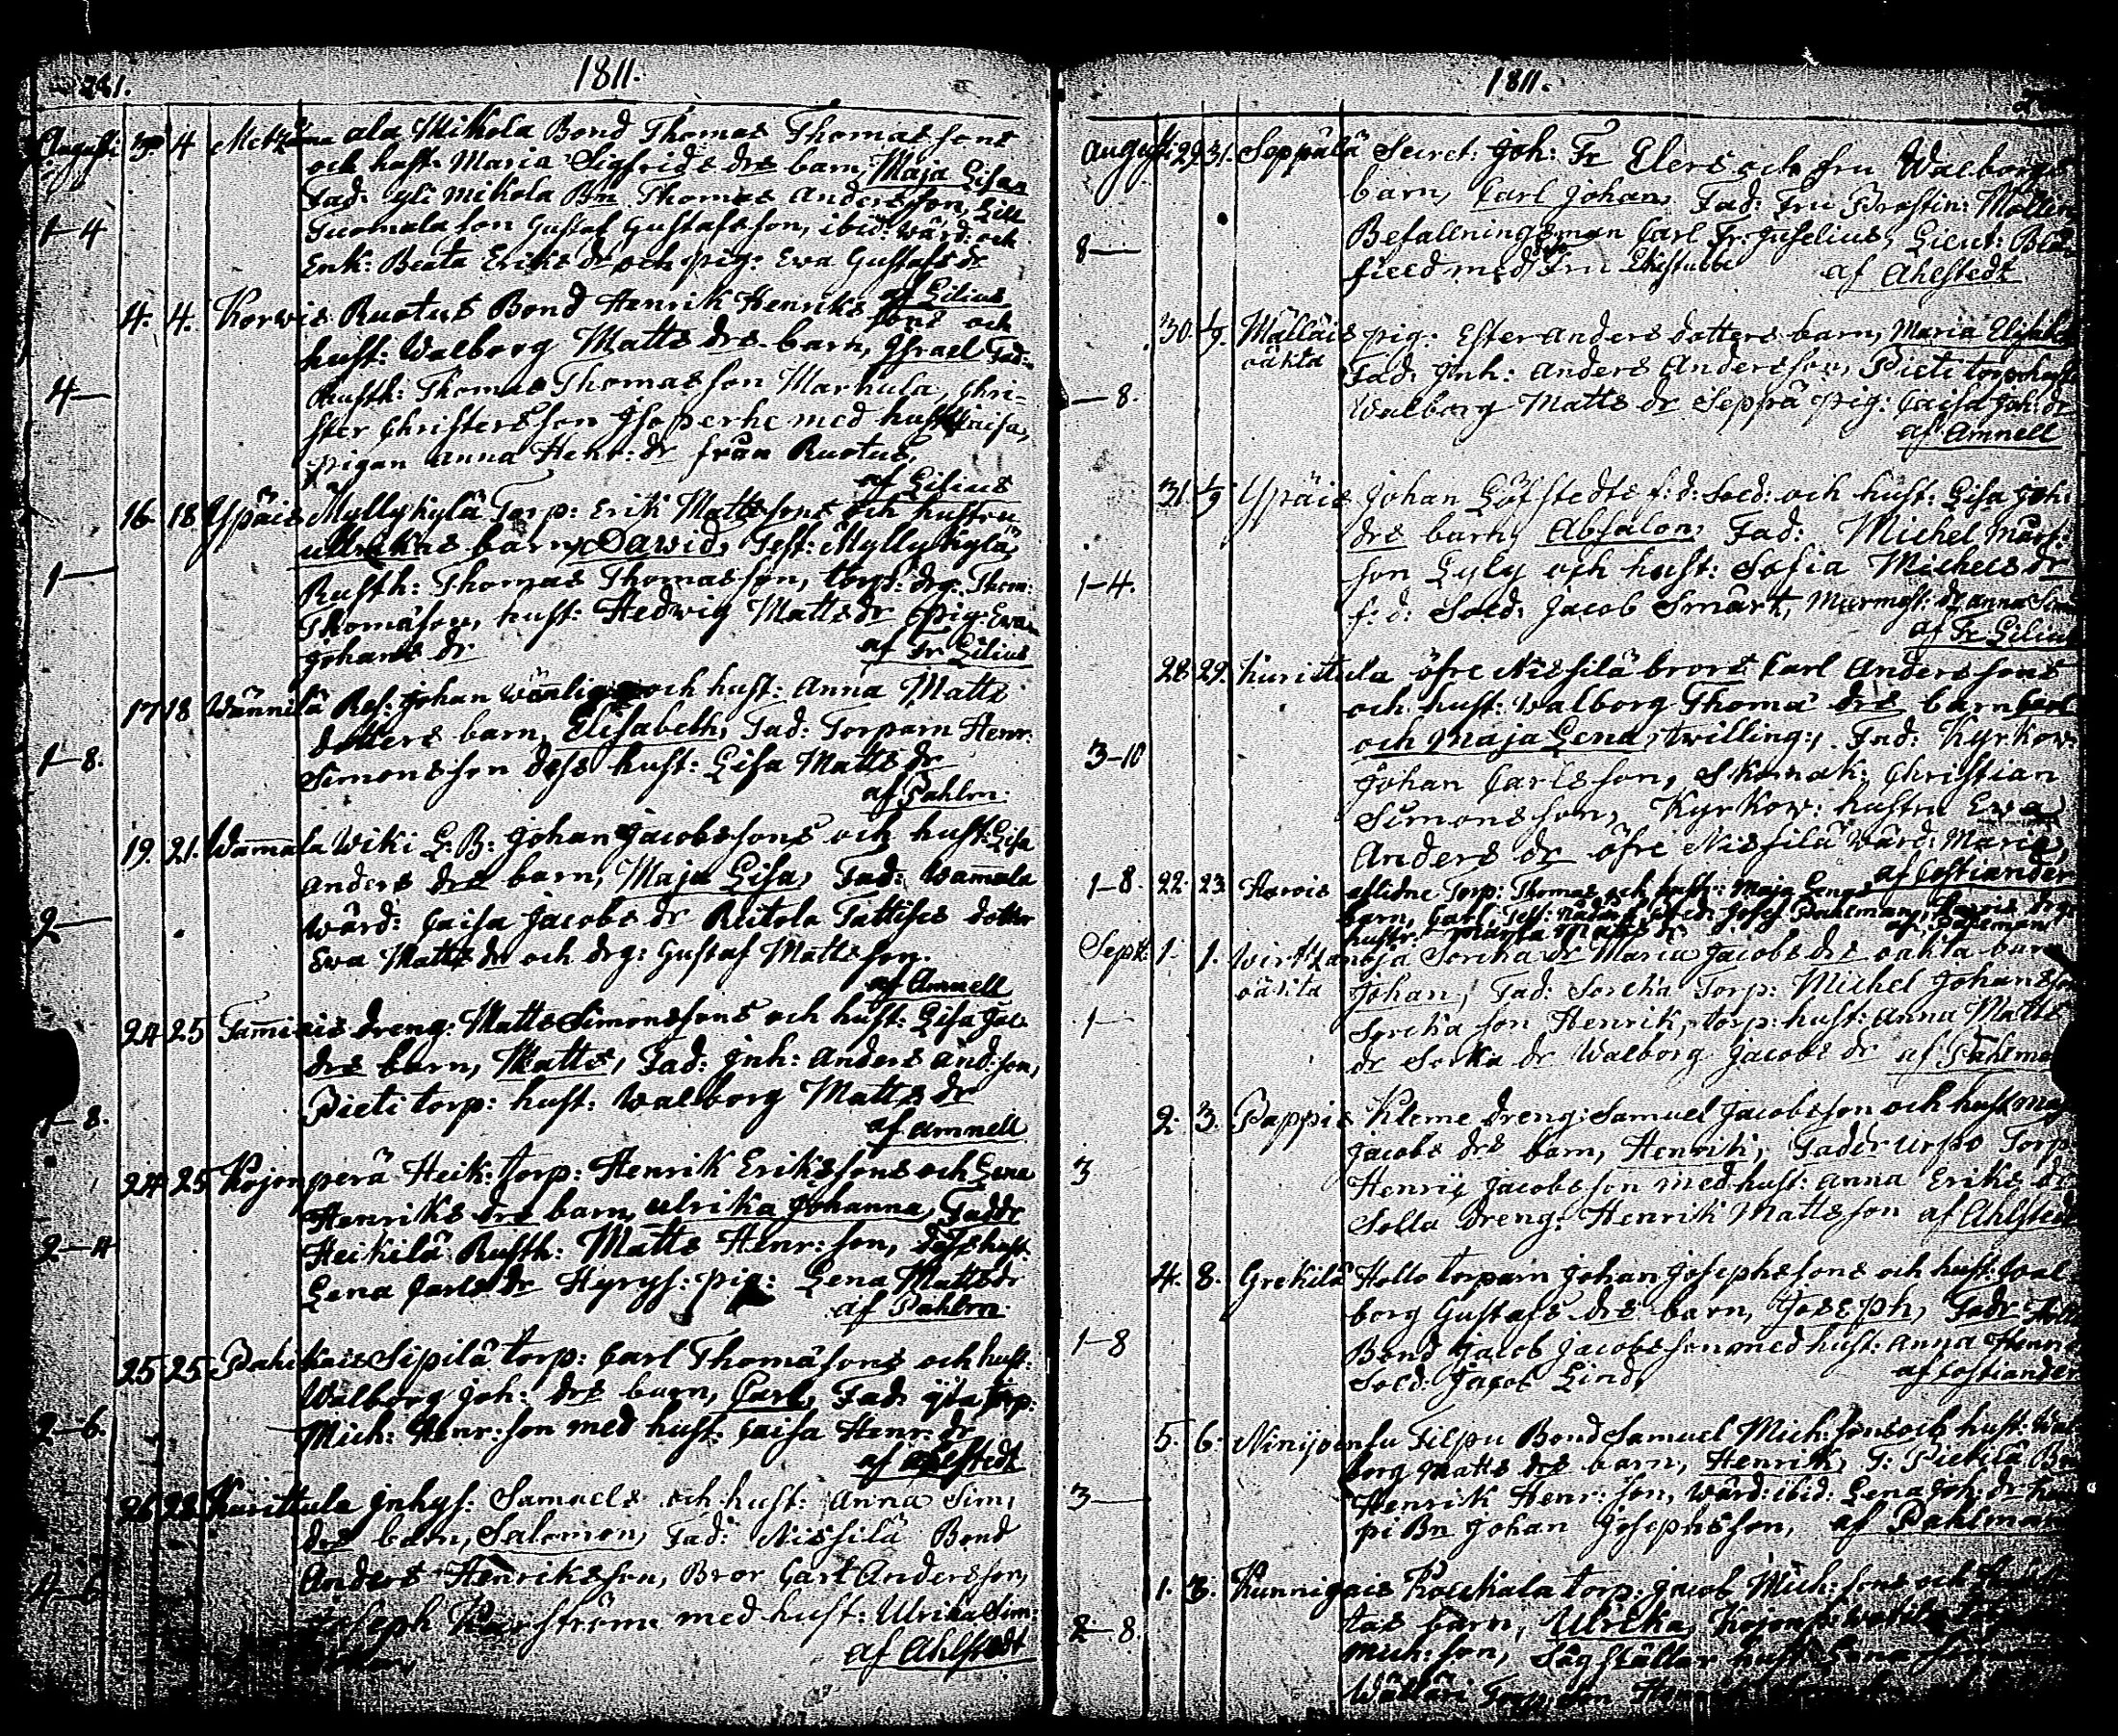 1811.
August 3 4 ala Mikola Bond Thomas Thomas sons
och hust: Maria Sigfrids drs barn, Maja Lisa,
Fad: yli Mikola Bn Thomas Andersson,
1-4 Tuomala son Gustaf Gustafsson, ibid: wärd: och
Enk: Beata Eriks dr och pig: Ewa Gustafs dr
af Lilius
4. 4. Korvis Ruotus Bond Henrik Henriks sons och
hust: Walborg Matts drs barn, Israel Fad:
4— Rusth: Thomas Thomasson Marhula, Chri=
ster Christersson Isoperhe med hust Caisa,
pigan Anna Henr: dr från Ruotus,
af Lilius
16 18 Ypäis Myllykylä Torp: Erik Mattssons och hustru
Ulrikas barn, David, Test: Myllykylä
1— Rusth: Thomas Thomasson, torp: drg: Thom:
Thomäson, hust: Hedwig Matts dr pig: Ewa
Johans dr
af Fr Lilius
17 18 Wännilä Ref: Johan och hust: Anna Matts
dotters barn, Elisabeth, Fad: Torparn Henr:
1-8. Simonsson dess hust: Lisa Matts dr
af Pahlm:
19. 21. Wam̄ala Wiki L: B: Johan Jacobssons och hust: Lisa
Anders drs barn, Maja Lisa, Fad: Wam̄ala
2— wärd: Caisa Jacobs dr Reitola Tattises dotter
Ewa Matts dr och drg: Gustaf Mattsson.
af Amnell
24 25 dreng: Matts Simonssons och hust: Lisa Jac:
drs barn, Matts, Fad: Inh: Anders And:son,
Pieti torp: hust: Walborg Matts dr
1-8. af Amnell
24 25 Kojonperä Heik: torp: Henrik Erikssons och Lena
Henriks drs barn, Ulrika Johanna, Faddr
2-4 Heikilä Rusth: Matts Henr: son, dess hust:
Lena Carls dr Hyrys: pig: Lena Matts dr
af Pahlm:
25 25 Pahikais Sipilä torp: Carl Thomäsons och hust:
Walborg Joh: drs barn, Carl, Fad: torp:
2-6. Mich: Henr: son med hust: Caisa Henr: dr
af Ahlstedt
26 Kurittula Inhys: Samuels och hust: Anna Sim:
drs barn, Salomon, Fad: Nissilä Bond
4-6 Anders Henriksson, Bror Carl Andersson,
Joseph med hust: Ulrika Sim:
af Ahlstedt
1811.
August: 29 31. Seppälä Secret: Joh: Fr Elers och fru Walborgs
barn, Carl Johan, Fad: Fru Prostin: Mollin
8— Befallningsman Carl Fr: Juselius, Lieut:
med Fru
af Ahlstedt
30. 1/9. Mälläis pig: Ester Anders dotters barn, Maria Elisab:
oäkta Fad: Inh: Anders Andersson, Pieti torp hust
—8. Walborg Matts dr Seppä pig: Caisa Joh: dr
af Amnell
31. 1/9 Ypäis Johan Löfstedts f: d: Sold: och hust: Lisa Joh:
drs barn, Absalon, Fad: Michel
1-4. son Lyly och hust: Sofia Michels dr
f: d: Sold: Jacob Smärt, Murmest: dr Anna
af Fr Lilius
28 29. Kurittula öfre Nissilä brors Carl Anders sons
och hust: Walborg Thomä drs barn Carl
och Maja Lena, twilling:, Fad: Kyrkov:
3-10 Johan Carlsson, Skomak: Christian
Simonsson, Kyrkov: hustru Ewa
Anders dr öfre Nissilä wärd: Maria,
af Costiander
1-8. 22. 23. aflidne Torp: Thomas och hust: Maja Lenas
barn, Carl, Test: Sold: Josef Pahlman,
hustr: Maria Matts dr
Sept: 1. 1. Wirttanoja Sorcka dr Maria Jacobs drs oäkta barn
oäkta Johan, Fad: Sorcka Torp: Michel Johansson
1— Sorcka son Henrik, torp: hust: Anna Matts
dr Sorka dr Walborg Jacobs dr af Pahlman
2. 3. Pappis Kleme dreng: Samuel Jacobsson och hust Maj
Jacobs drs barn, Henrik, Faddr Torp
3 Henric Jacobsson med hust: Anna Eriks dr
dreng: Henrik Mattsson af Ahlstedt
4. 8. Grekilä Hollo torparn Johan Josephssons och hust: Wal
borg Gustafs drs barn, Joseph, Fadr
1-8 Bond Jacob Jacobsson med hust: Anna Henr:
Sold: Jacob Lind,
af Costiander
5. 6. Ninijoensu Filpu Bond Samuel Mich: sons och hust: Wal
borg Matts drs barn, Henrik, F: Pietilä Bn
3— Henrik Henr: son, wärd: ibid: Lena Joh: dr
pi Bn Johan Josephsson, af Pahlman
1. 3. torp: Jacob Mich: sons och
2-8. barn, Ulrika,
Mich: son, hust: Lena
Torp: son